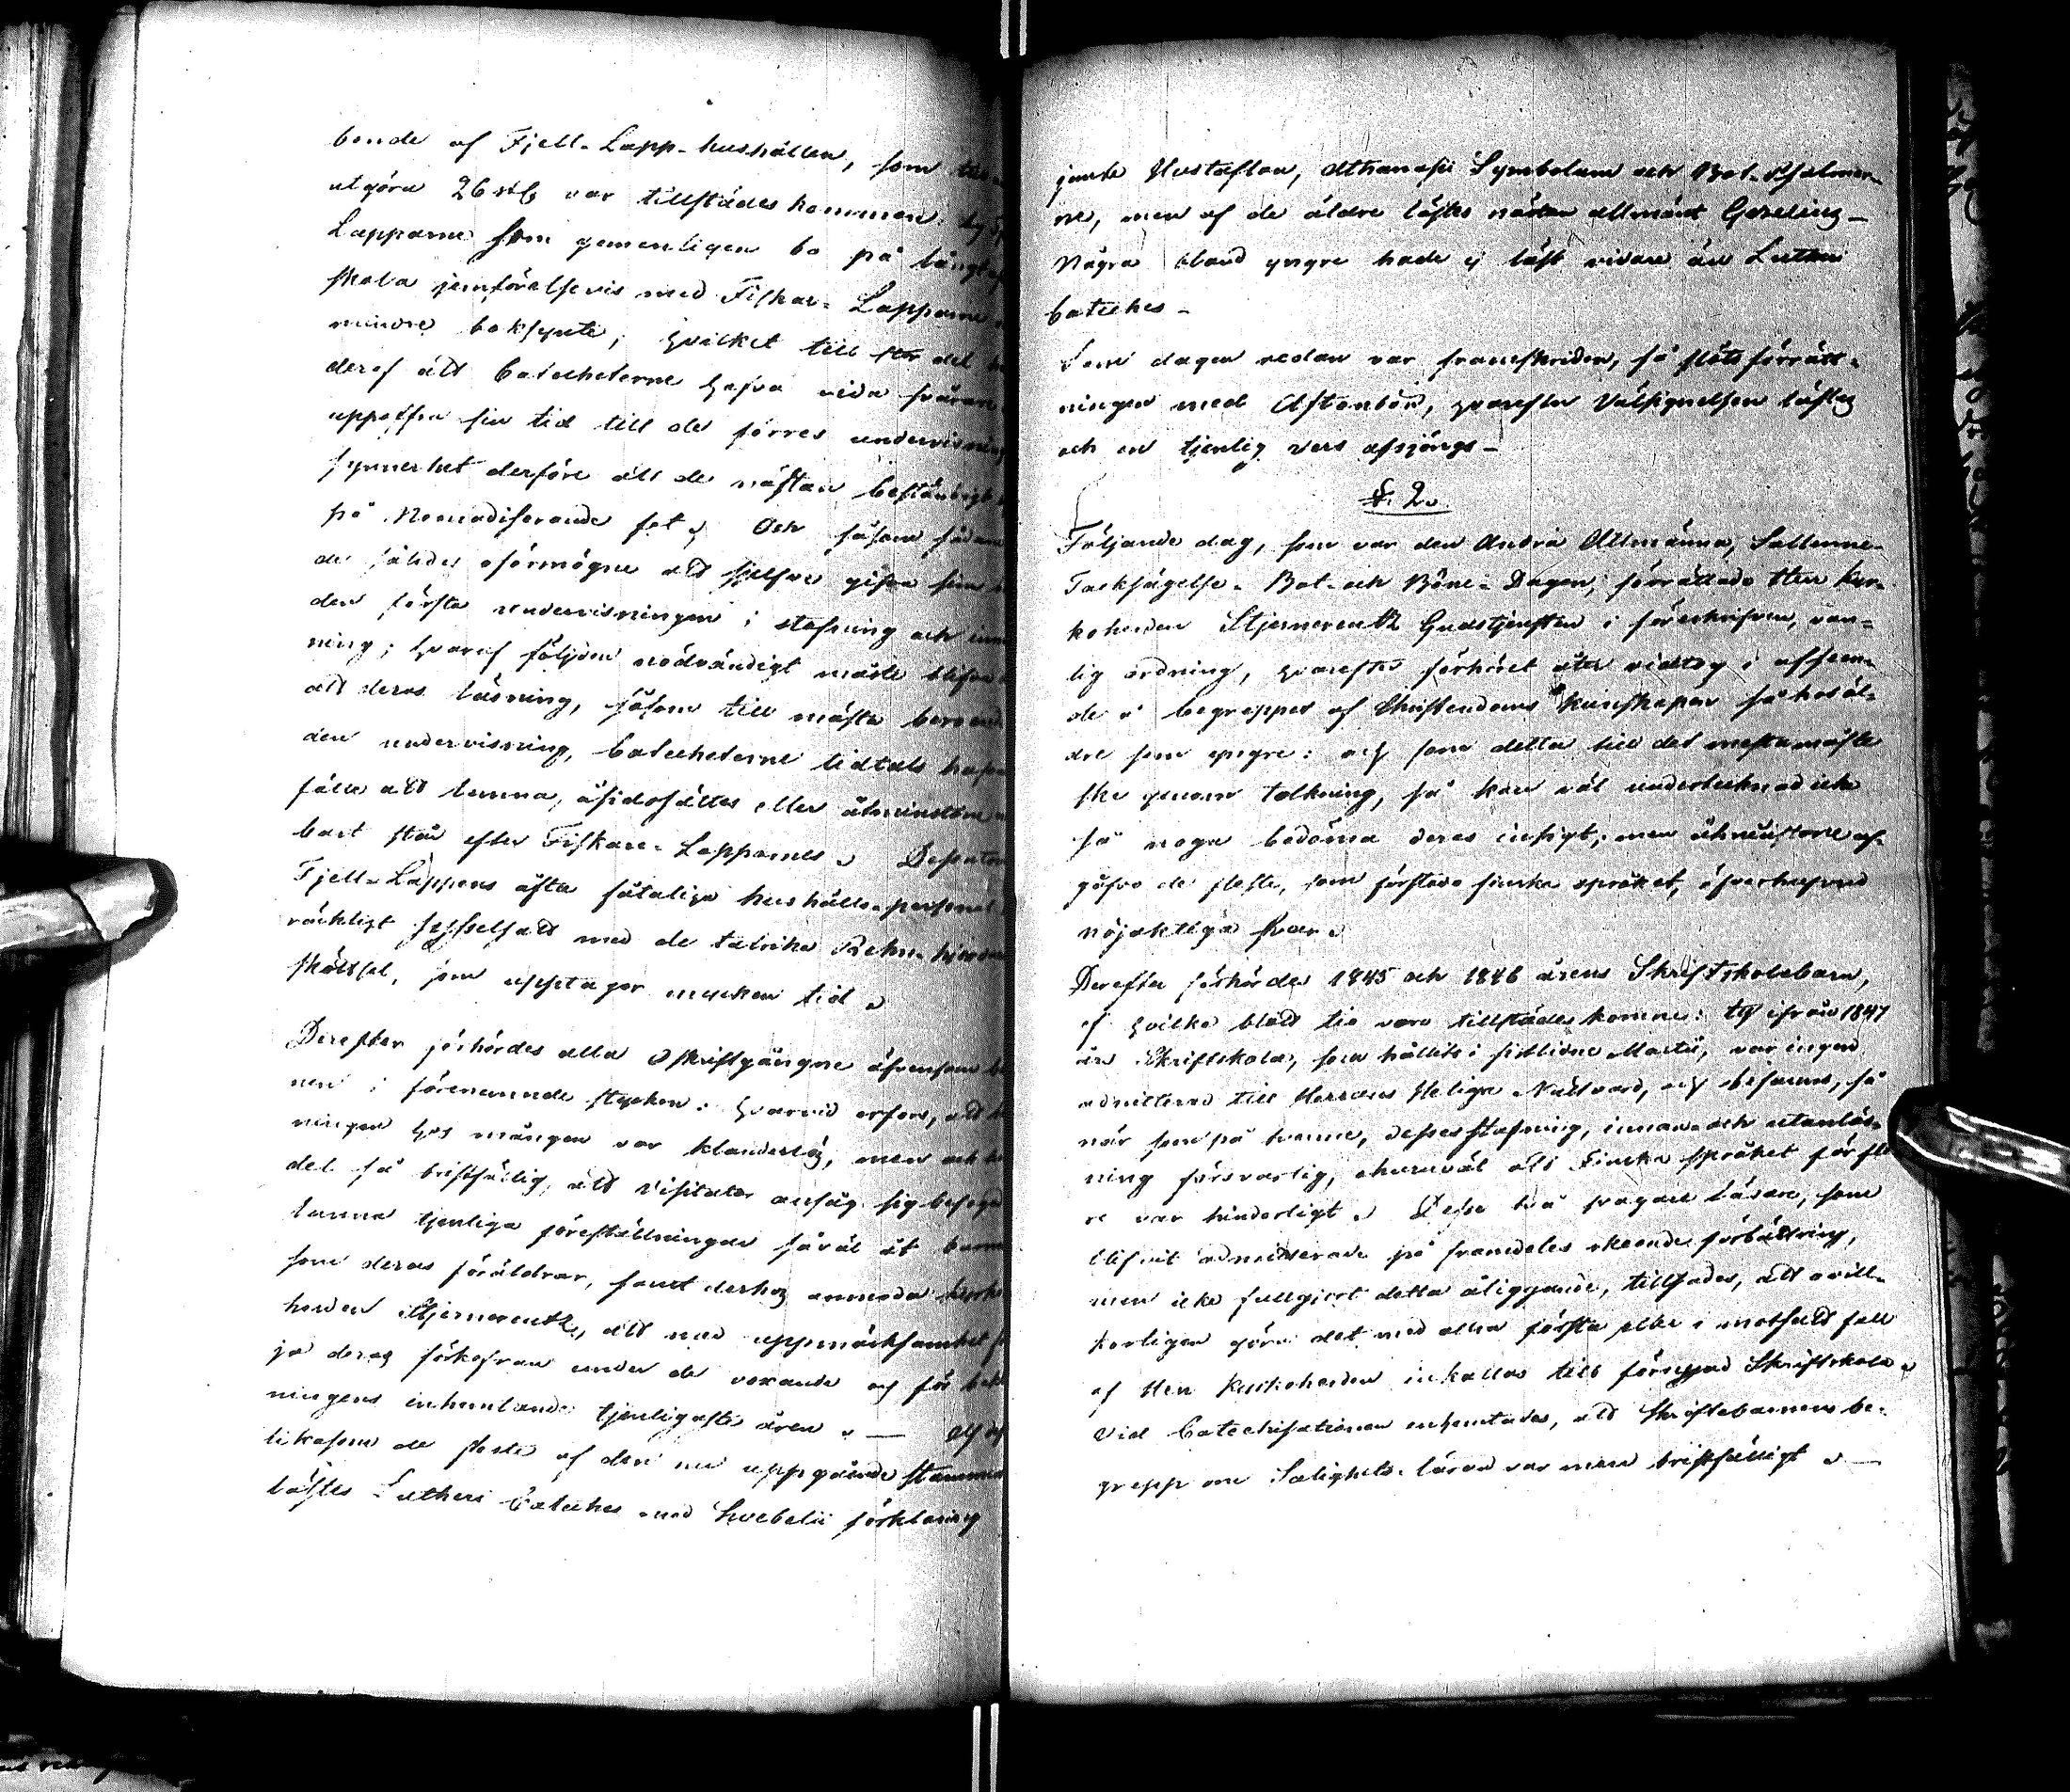 bende af Fjell-Lapp-hushållen, som
utgöra 26 st var tillstädes kommen
Lapparne som gemenligen bo på långt
skola jemförelsevis med Fiskar-Lapparne
mindre bokfynte; hvilket till stor del
deraf att Catecheterne hafva vida svårare
uppoffra sin tid till de förres undervisning
synnerhet derföre att de nästan beständigt
på Nomadiserande fot, Och såsom sådane
de således oförmögne att sjelfve gifva sina
den första undervisningen i stafning och innan
ning; hvaraf följden nödvändigt måste blifva
att deras läsning, såsom till mästa beroende
den undervisning, Catecheterne tidtals
fälle att lemna, åsidosättes eller åtminstone
bart står efter Fiskare-Lapparnes. Dessutom
Fjell-Lappens ofta fåtaliga hushålls-personal
räckligt sysselsatt med de talrika Rehn-hjordar
skötsel, som upptager mycken tid.
Derefter förhördes alla Oskriftgångne äfvensom
nen i förenämnde stycken: hvarvid erfors, att
ningen hos mången var klanderlös, men och
del så bristfällig, att Visitator ansåg sig befogad
lemna tjenliga föreställningar såväl åt barnen
som deras föräldrar, samt derhos anmoda Kyrko
herden Stjernereutz, att med uppmärksamhet
ja deras förkofran under de vexande och för
ningens inhemtande tjenligaste åren. — Af
likasom de fleste af den nu uppgående stammen
lästes Lutheri Catches med Svebelii förklaring
jemte Hustaflan, Athanasii Symbolum och Bot-Psalmer-
ne, men af de äldre lästes nästan allmänt Gezelius-
Några bland yngre hade ej läst vidare än Lutheri
Cateches-
Som dagen redan var framskriden, så slöts förrätt-
ningen med Aftonbön, hvarefter Välsignelsen lästes
och en tjenlig vers afsjöngs-
§. 2.
Följande dag, som var den Andra Allmänna, Solenne-
Tacksägelse-Bot-och Böne-Dagen, förrättade Herr Kyr-
koherden Stjernereutz Gudstjensten i föreskrifven, van-
lig ordning, hvarefter förhöret åter vidtog i afseen-
de å begreppet af Christendoms Kunskapen så hos äl-
dre som yngre: och som detta till det mesta måste
ske genom tolkning, så kan väl undertecknad icke
så noga bedöma deras insigt; men åtminstone af-
gåfvo de fleste, som förstodo finska språket, öfverhufvud
nöjaktiga svar.
Derefter förhördes 1845 och 1846 årens Skriftskolebarn,
af hvilka blott tio voro tillstädeskomne: ty ifrån 1847
års Skriftskola, som hållits i sistlidne Martii, var ingen
admitterad till Herrans Heliga Nattvard, och befanns, så
när som på tvenne, desses stafning, innan-och utanläs-
ning försvarlig, ehuruväl att Finska språket för fle
re var hinderligt. Desse två svagare läsare, som
blifvit admitterade på framdeles skeende förbättring,
men icke fullgjort detta åliggande, tillsades, att ovill-
korligen göra det med allra första eller i motsatt fall
af Herr Kyrkoherden inkallas till förnyad Skriftskola.
Vid Catechisationen inhemtades, att Skriftebarnens be-
grepp om Salighets-läran var mera bristfälligt. —